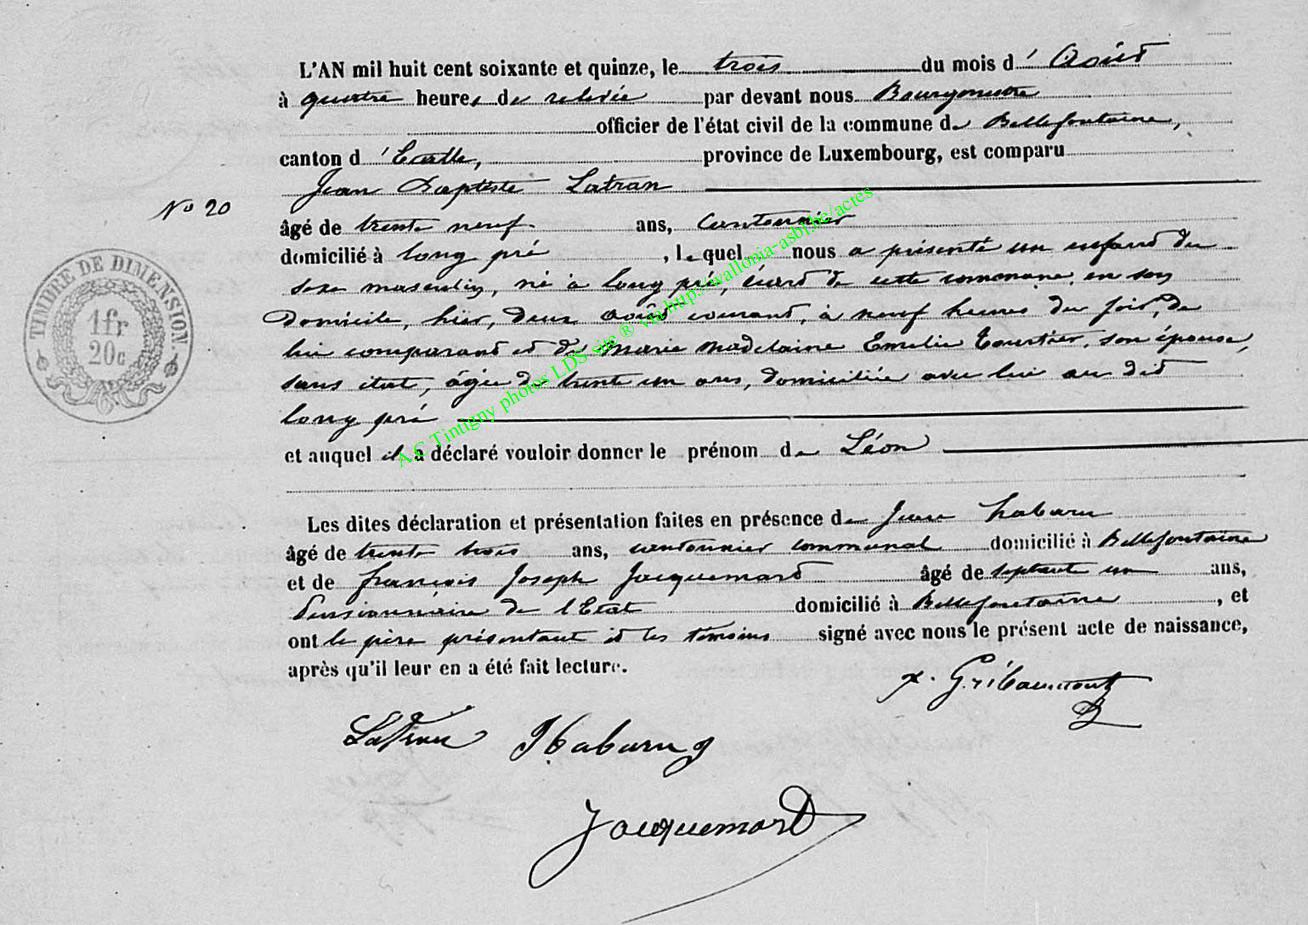 L'AN mil huit cent soixante et quinze, le trois du mois d' Août
à quatre heures de relevée par devant nous Bourgmestre
officier de l'état civil de la commune de Bellefontaine,
canton d' Etalle, province de Luxembourg, est comparu
Jean Baptiste Latran
N° 20
âgé de trente neuf ans, cantonnier
domicilié à long pré , lequel nous a présenté un enfant du
sexe masculin, né à long pré, écart de cette commune, en son
domicile, hier, deux août courant, à neuf heures du soir, de
lui comparant et de Marie Madelaine Emelie Tourtier, son épouse,
sans état, âgée de trente un ans, domiciliée avec lui au dit
long pré
et auquel il a déclaré vouloir donner le prénom de Léon
Les dites déclaration et présentation faites en présence de Jean
âgé de trente trois ans, cantonnier communal domicilié à Bellefontaine
et de françois Joseph Jacquemard âgé de septante un ans,
Pensionnaire de l'Etat domicilié à Bellefontaine , et
ont le père présentant et les témoins signé avec nous le présent acte de naissance,
après qu'il leur en a été fait lecture.
Gribaumont
Latran Habaru
Jacquemard
TIMBRE DE DIMENSION
1 fr
20c
A.C Tintigny photos LDS site ® via http://wallonia-asbl.be/acres